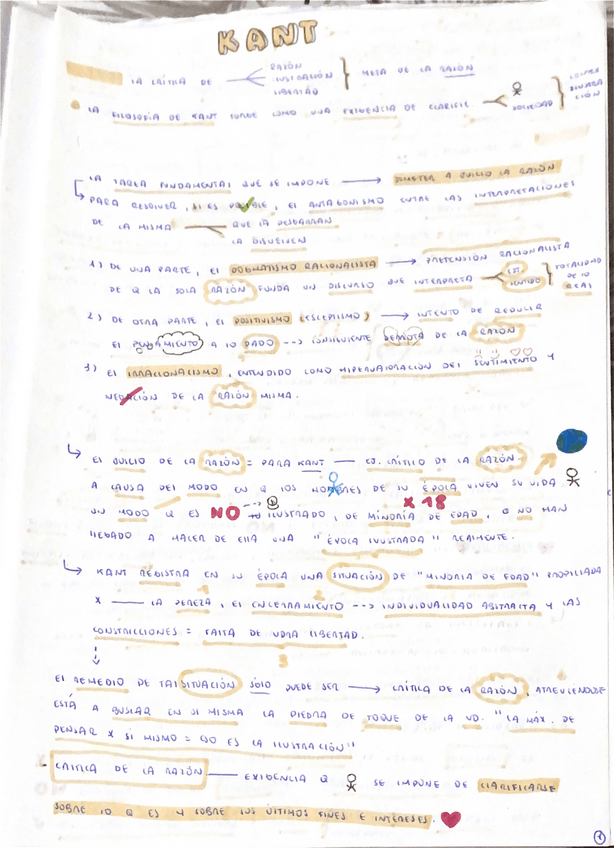 KANT
RAZÓN
LA CRÍTICA DE ILUSTRACIÓN META DE LA RAZÓN
LIBERTAD
LA FILOSOFÍA DE KANT SURGE COMO UNA EXIGENCIA DE CLARIFIC SOCIEDAD
LA TAREA FUNDAMENTAL QUE SE IMPONE → SOMETER A JUICIO LA RAZÓN
PARA RESOLVER, SI ES POSIBLE, EL ANTAGONISMO ENTRE LAS INTERPRETACIONES
DE LA MISMA QUE LA DESGARRAN
LA DISUELVEN
1) DE UNA PARTE, EL DOGMATISMO RACIONALISTA → PRETENSIÓN RACIONALISTA
DE Q LA SOLA RAZÓN FUNDA UN DISCURSO QUE INTERPRETA EST. SENTIDO TOTALIDAD DE LO REAL
2) DE OTRA PARTE, EL POSITIVISMO (ESCEPTISMO) → INTENTO DE REDUCIR
EL PENSAMIENTO A LO DADO --> CONSIGUIENTE DERROTA DE LA RAZÓN
3) EL IRRACIONALISMO, ENTENDIDO COMO HIPERVALORACIÓN DEL SENTIMIENTO Y
NEGACIÓN DE LA RAZÓN MISMA.
EL JUICIO DE LA RAZÓN = PARA KANT — CO. CRÍTICO DE LA RAZÓN
A CAUSA DEL MODO EN Q LOS HOMBRES DE SU ÉPOCA VIVEN SU VIDA
UN MODO Q ES NO --> ILUSTRADO, DE MINORÍA DE EDAD, O NO HAN
X 18
LLEGADO A HACER DE ELLA UNA "ÉPOCA ILUSTRADA" REALMENTE.
KANT REGISTRA EN SU ÉPOCA UNA SITUACIÓN DE "MINORÍA DE EDAD" PROPICIADA
X — LA PEREZA, EL ENCERRAMIENTO --> INDIVIDUALIDAD ABSTRACTA Y LAS
1 2
CONSTRICCIONES = FALTA DE VDRA LIBERTAD.
3
EL REMEDIO DE TAL SITUACIÓN SÓLO PUEDE SER → CRÍTICA DE LA RAZÓN, ATREVIENDOSE
ESTÁ A BUSCAR EN SI MISMA LA PIEDRA DE TOQUE DE LA VD. "LA MÁX. DE
PENSAR X SI MISMO = ES LA ILUSTRACIÓN"
CRITICA DE LA RAZÓN — EXIGENCIA Q SE IMPONE DE CLARIFICARSE
SOBRE LO Q ES Y SOBRE SUS ÚLTIMOS FINES E INTERESES.
1